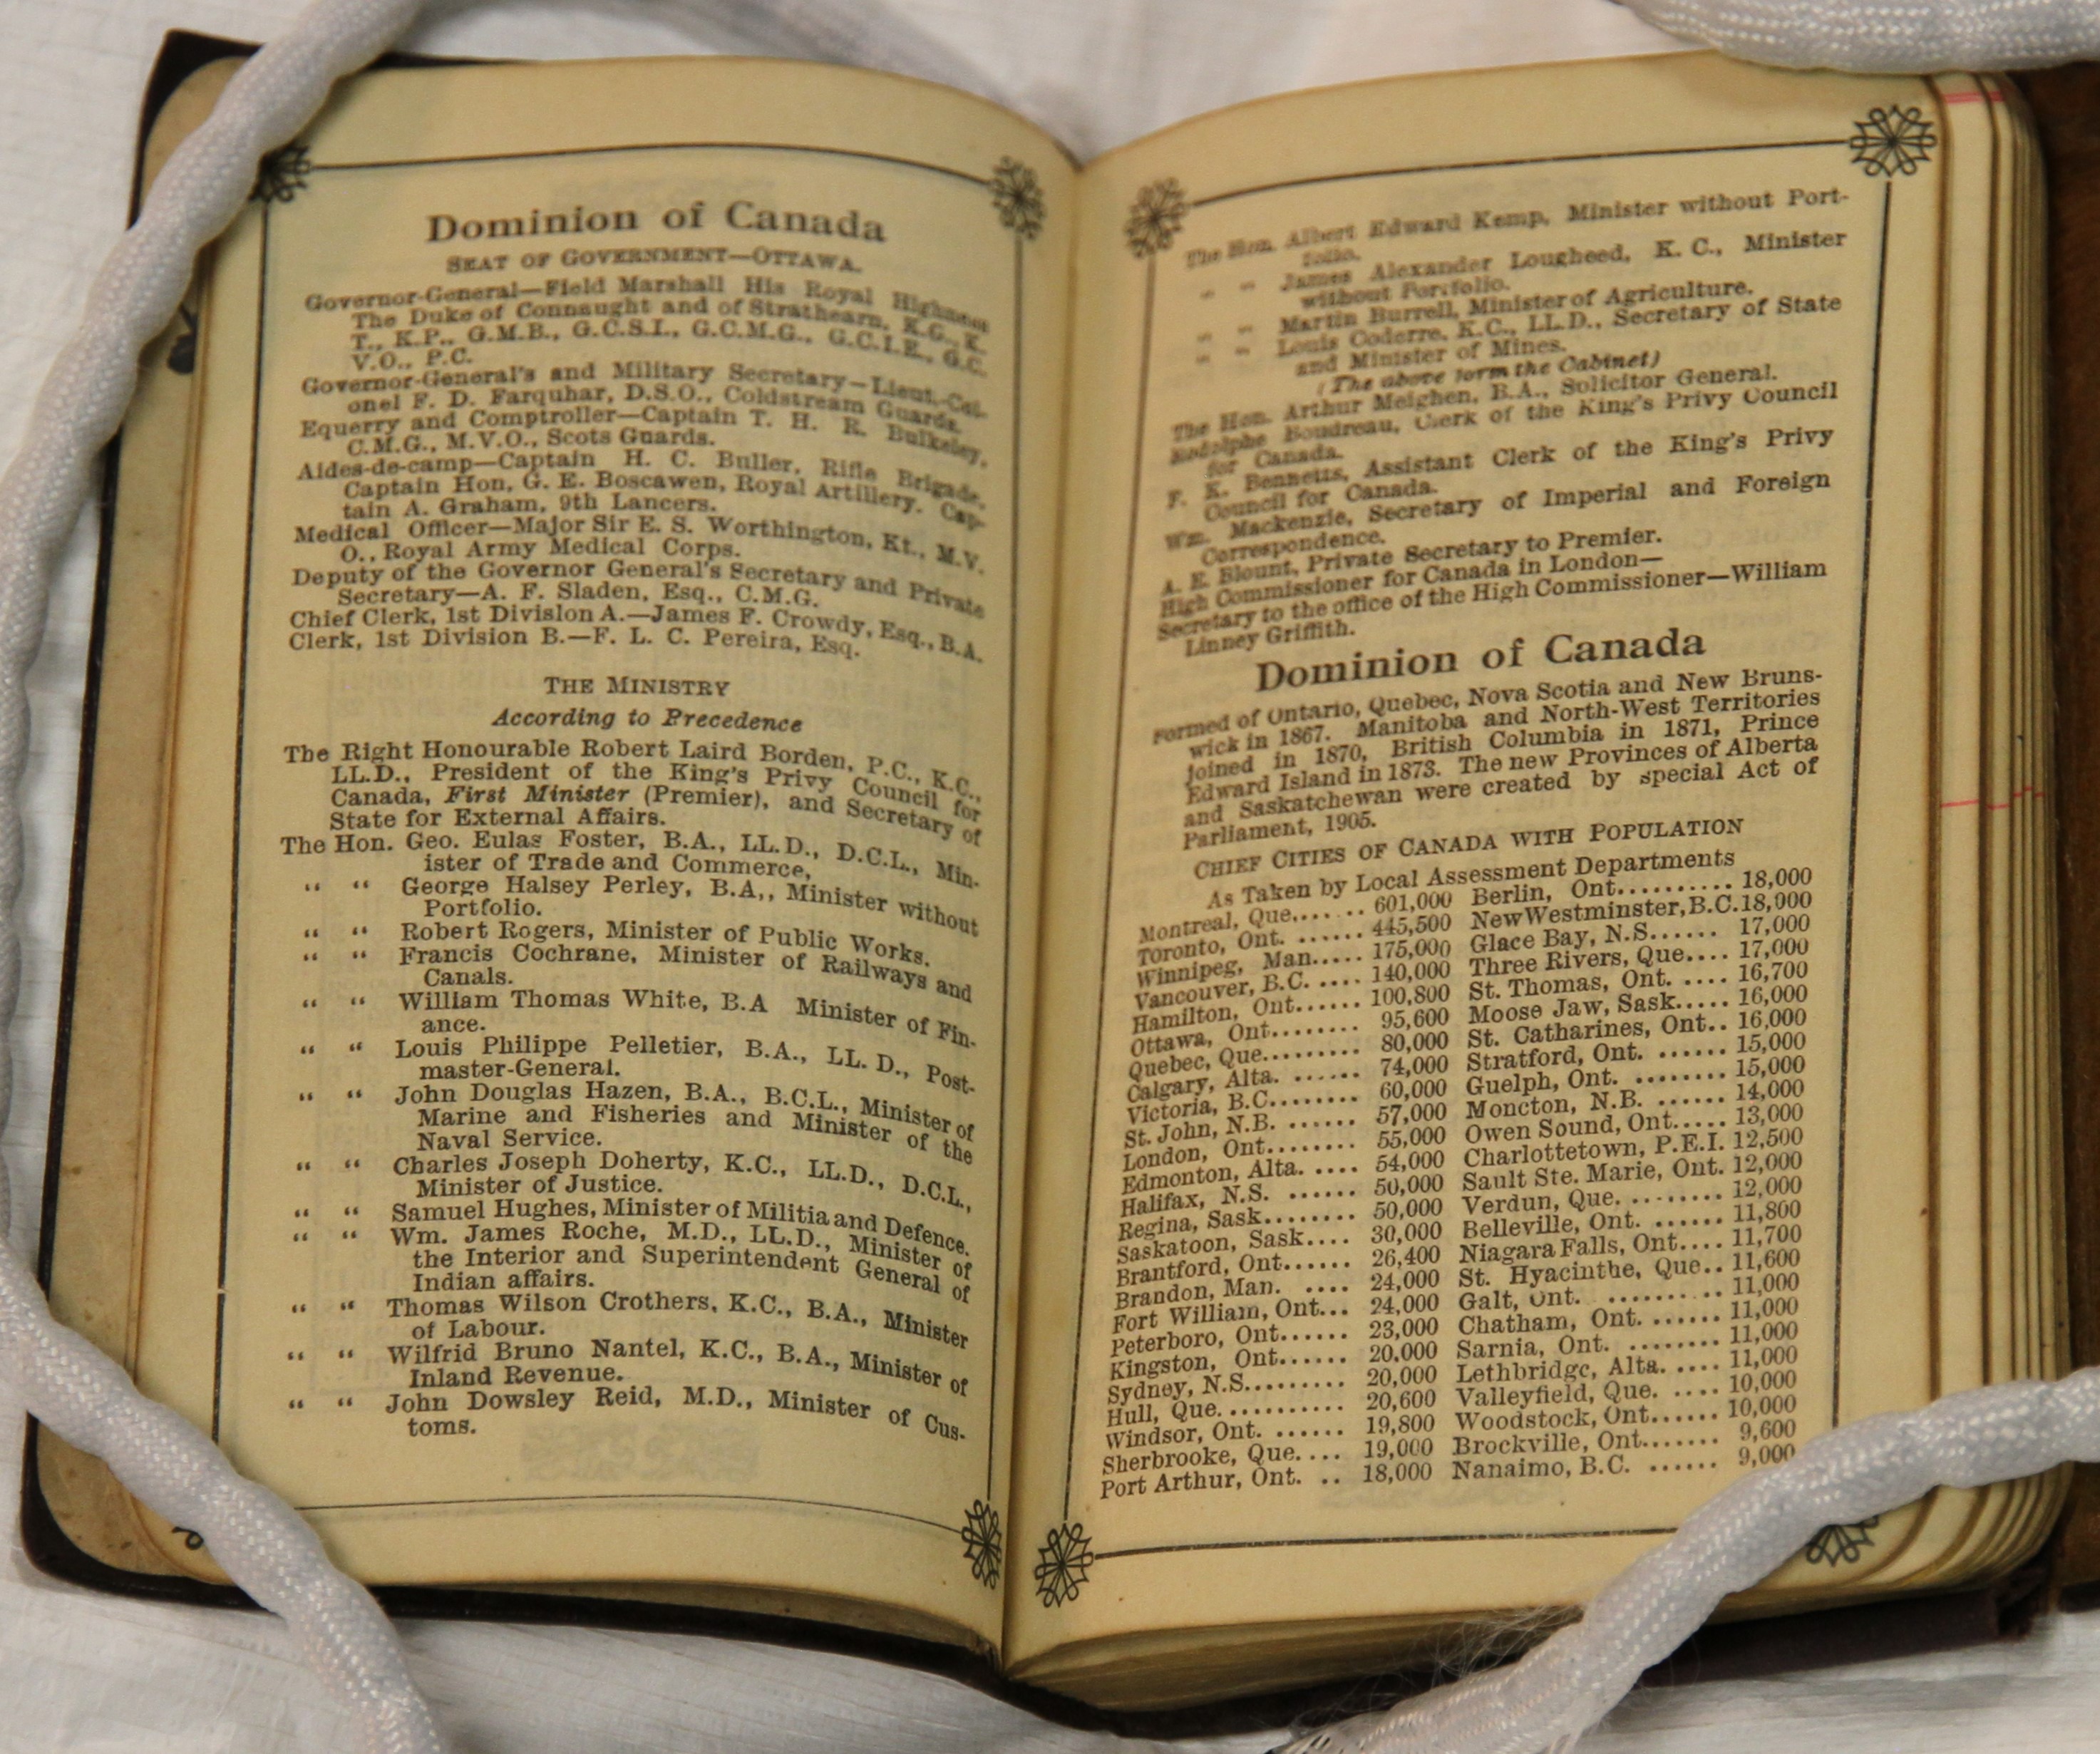 Dominion of Canada
SEAT OF GOVERNMENT—OTTAWA.
Governor-General—Field Marshall His Royal Highness
The Duke of Connaught and of Strathearn, K.G., K.
T., K.P., G.M.B., G.C.S.I., G.C.M.G., G.C.I.E., G.C.
V.O., P.C.
Governor-General's and Military Secretary—Lieut.-Col-
onel F. D. Farquhar, D.S.O., Coldstream Guards.
Equerry and Comptroller—Captain T. H. R. Bulkeley,
C.M.G., M.V.O., Scots Guards.
Aides-de-camp—Captain H. C. Buller, Rifle Brigade,
Captain Hon, G. E. Boscawen, Royal Artillery. Cap-
tain A. Graham, 9th Lancers.
Medical Officer—Major Sir E. S. Worthington, Kt., M.V.
O., Royal Army Medical Corps.
Deputy of the Governor General's Secretary and Private
Secretary—A. F. Sladen, Esq., C.M.G.
Chief Clerk, 1st Division A.—James F. Crowdy, Esq., B.A.
Clerk, 1st Division B.—F. L. C. Pereira, Esq.
THE MINISTRY
According to Precedence
The Right Honourable Robert Laird Borden, P.C., K.C.,
LL.D., President of the King's Privy Council for
Canada, First Minister (Premier), and Secretary of
State for External Affairs.
The Hon. Geo. Eulas Foster, B.A., LL.D., D.C.L., Min-
ister of Trade and Commerce,
“ “ George Halsey Perley, B.A,, Minister without
Portfolio.
“ “ Robert Rogers, Minister of Public Works.
“ “ Francis Cochrane, Minister of Railways and
Canals.
“ “ William Thomas White, B.A Minister of Fin-
ance.
“ “ Louis Philippe Pelletier, B.A., LL. D., Post-
master-General.
“ “ John Douglas Hazen, B.A., B.C.L., Minister of
Marine and Fisheries and Minister of the
Naval Service.
“ “ Charles Joseph Doherty, K.C., LL.D., D.C.L.,
Minister of Justice.
“ “ Samuel Hughes, Minister of Militia and Defence.
“ “ Wm. James Roche, M.D., LL.D., Minister of
the Interior and Superintendent General of
Indian affairs.
“ “ Thomas Wilson Crothers, K.C., B.A., Minister
of Labour.
“ “ Wilfrid Bruno Nantel, K.C., B.A., Minister of
Inland Revenue.
“ “ John Dowsley Reid, M.D., Minister of Cus-
toms.
The Hon. Albert Edward Kemp, Minister without Port-
folio.
“ “ James Alexander Lougheed, K. C., Minister
without Portfolio.
“ “ Martin Burrell, Minister of Agriculture.
“ “ Louis Coderre, K.C., LL.D., Secretary of State
and Minister of Mines.
(The above form the Cabinet)
The Hon. Arthur Meighen, B.A., Solicitor General.
Rodolphe Boudreau, Clerk of the King's Privy Council
for Canada.
F. K. Bennetts, Assistant Clerk of the King's Privy
Council for Canada.
Wm. Mackenzie, Secretary of Imperial and Foreign
Correspondence.
A. E. Blount, Private Secretary to Premier.
High Commissioner for Canada in London—
Secretary to the office of the High Commissioner—William
Linney Griffith.
Dominion of Canada
Formed of Ontario, Quebec, Nova Scotia and New Bruns-
wick in 1867. Manitoba and North-West Territories
joined in 1870, British Columbia in 1871, Prince
Edward Island in 1873. The new Provinces of Alberta
and Saskatchewan were created by special Act of
Parliament, 1905.
CHIEF CITIES OF CANADA WITH POPULATION
As Taken by Local Assessment Departments
Montreal, Que....... 601,000 Berlin, Ont.......... 18,000
Toronto, Ont. ...... 445,500 New Westminster, B.C. 18,000
Winnipeg, Man..... 175,000 Glace Bay, N.S...... 17,000
Vancouver, B.C. .... 140,000 Three Rivers, Que.... 17,000
Hamilton, Ont...... 100,800 St. Thomas, Ont. .... 16,700
Ottawa, Ont........ 95,600 Moose Jaw, Sask..... 16,000
Quebec, Que......... 80,000 St. Catharines, Ont.. 16,000
Calgary, Alta. ...... 74,000 Stratford, Ont. ...... 15,000
Victoria, B.C........ 60,000 Guelph, Ont. ........ 15,000
St. John, N.B. ...... 57,000 Moncton, N.B. ...... 14,000
London, Ont........ 55,000 Owen Sound, Ont..... 13,000
Edmonton, Alta. .... 54,000 Charlottetown, P.E.I. 12,500
Halifax, N.S. ...... 50,000 Sault Ste. Marie, Ont. 12,000
Regina, Sask........ 50,000 Verdun, Que. ........ 12,000
Saskatoon, Sask.... 30,000 Belleville, Ont. ...... 11,800
Brantford, Ont...... 26,400 Niagara Falls, Ont.... 11,700
Brandon, Man. .... 24,000 St. Hyacinthe, Que.. 11,600
Fort William, Ont... 24,000 Galt, Ont. .......... 11,000
Peterboro, Ont...... 23,000 Chatham, Ont. ....... 11,000
Kingston, Ont...... 20.000 Sarnia, Ont. ........ 11,000
Sydney, N.S......... 20,000 Lethbridge, Alta. .... 11,000
Hull, Que. .......... 20,600 Valleyfield, Que. .... 10,000
Windsor, Ont. ...... 19,800 Woodstock, Ont...... 10,000
Sherbrooke, Que.... 19,000 Brockville, Ont....... 9,600
Port Arthur, Ont. .. 18,000 Nanaimo, B.C. ...... 9,000